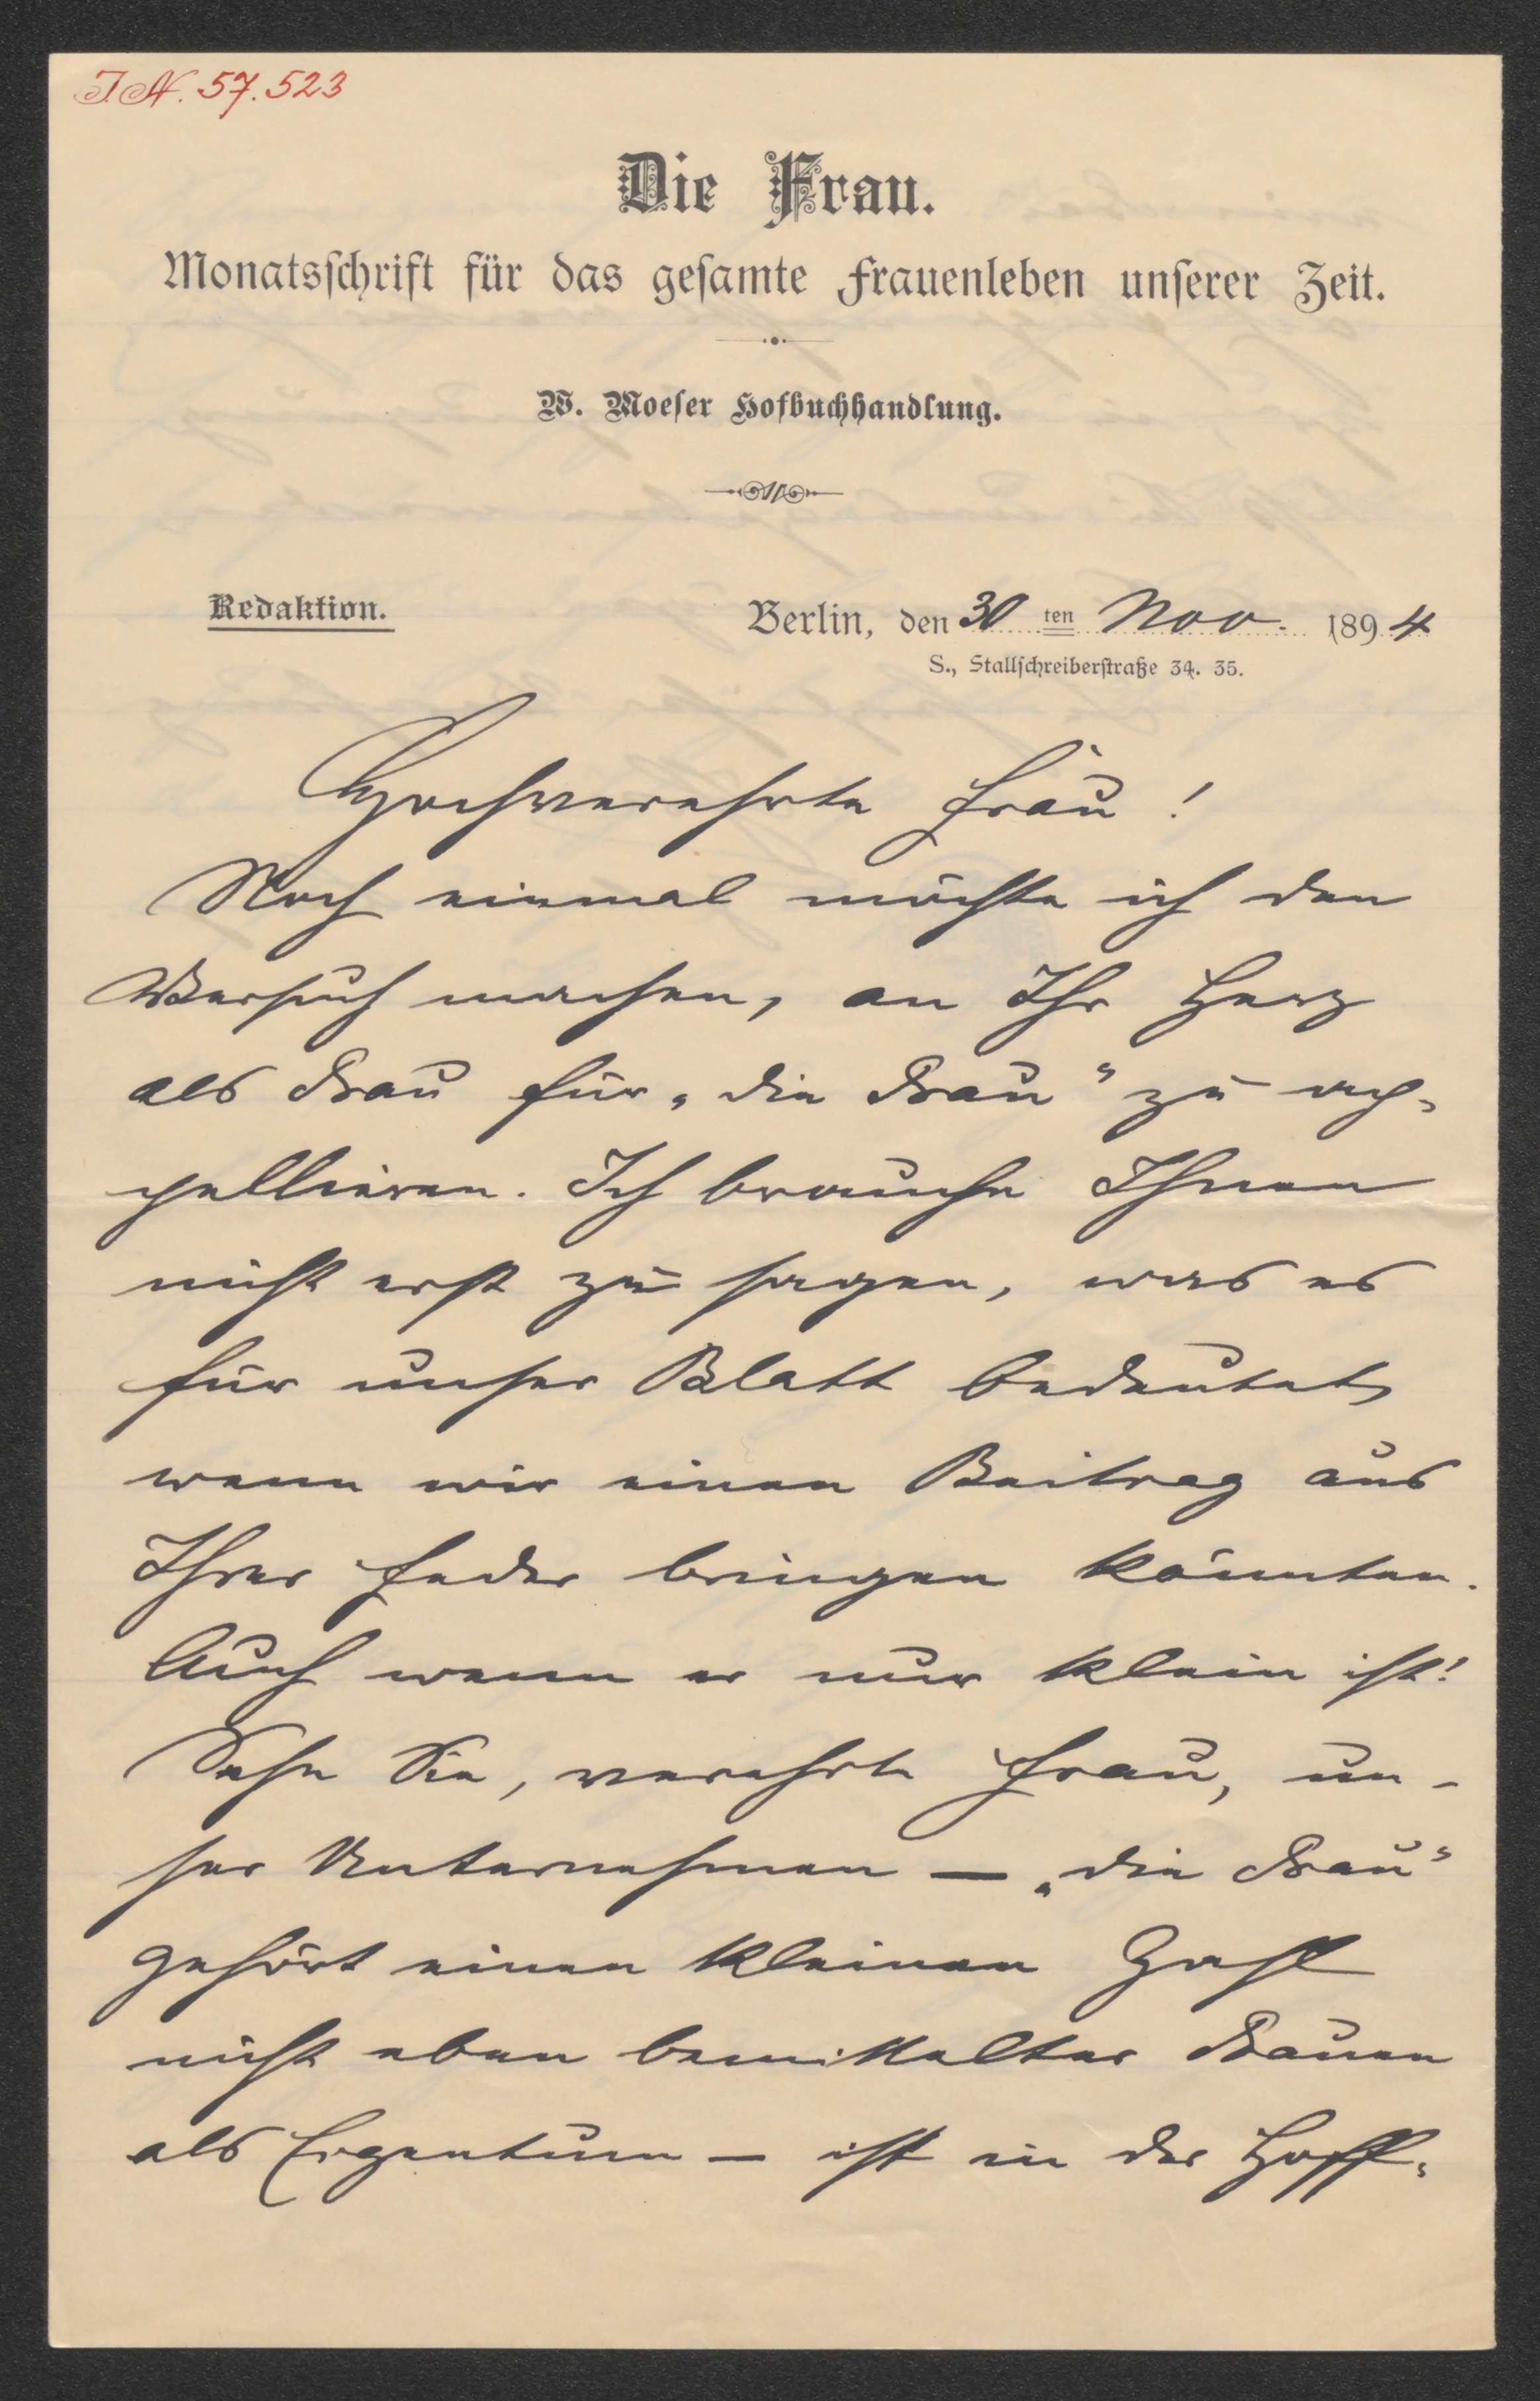 J.N. 57.523
Die Frau.
Monatsschrift für das gesamte Frauenleben unserer Zeit.
W. Moeser Hofbuchhandlung.
Redaktion.
Berlin, den 30 ten Nov. 1894
S., Stallschreiberstraße 34. 35.
Hochverehrte Frau!
Noch einmal möchte ich den
Versuch machen, an Ihr Herz
als Frau für „die Frau“ zu ap-
pellieren. Ich brauche Ihnen
nicht erst zu sagen, was es
für unser Blatt bedeutet,
wenn wir einen Beitrag aus
Ihrer Feder bringen könnten.
Auch wenn er nur klein ist!
Sehn Sie, verehrte Frau, un-
ser Unternehmen — „die Frau“
gehört einen kleinen Zahl
nicht eben bemittelter Frauen
als Eigentum — ist in der Hoff-